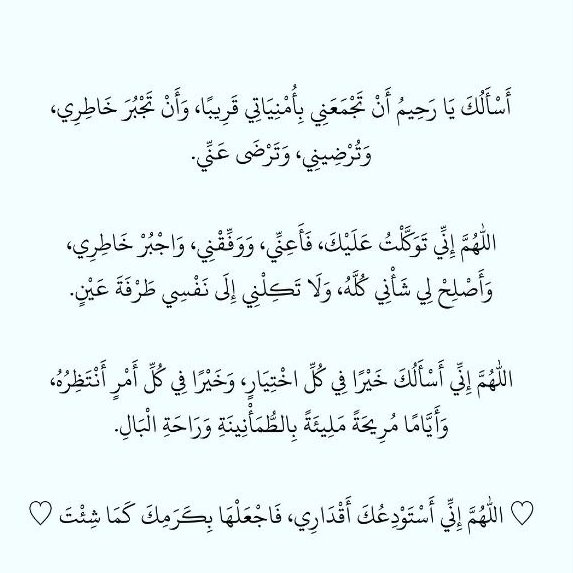 أَسْأَلُكَ يَا رَحِيمُ أَنْ تَجْمَعَنِي بِأُمْنِيَاتِي قَرِيبًا، وَأَنْ تَجْبُرَ خَاطِرِي،
وَتُرْضِينِي، وَتَرْضَى عَنِّي.
اللّٰهُمَّ إِنِّي تَوَكَّلْتُ عَلَيْكَ، فَأَعِنِّي، وَوَفِّقْنِي، وَاجْبُرْ خَاطِرِي،
وَأَصْلِحْ لِي شَأْنِي كُلَّهُ، وَلَا تَكِلْنِي إِلَى نَفْسِي طَرْفَةَ عَيْنٍ.
اللّٰهُمَّ إِنِّي أَسْأَلُكَ خَيْرًا فِي كُلِّ اخْتِيَارٍ، وَخَيْرًا فِي كُلِّ أَمْرٍ أَنْتَظِرُهُ،
وَأَيَّامًا مُرِيحَةً مَلِيئَةً بِالطُّمَأْنِينَةِ وَرَاحَةِ الْبَالِ.
♡ اللّٰهُمَّ إِنِّي أَسْتَوْدِعُكَ أَقْدَارِي، فَاجْعَلْهَا بِكَرَمِكَ كَمَا شِئْتَ ♡